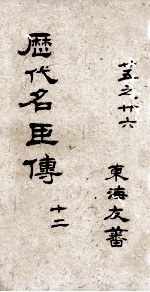 廿五之廿六
歷代名臣傳
十二
東海友蕃